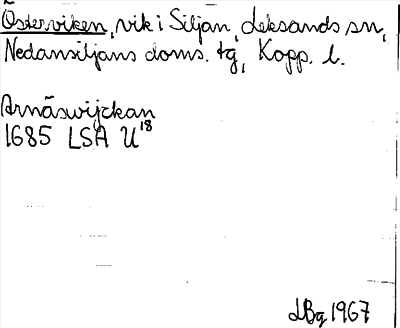 Österviken, vik i Siljan, Leksands sn,
Nedansiljans doms. tg, Kopp. l.
Arnäswijckan
1685 LSA U18
LBg 1967